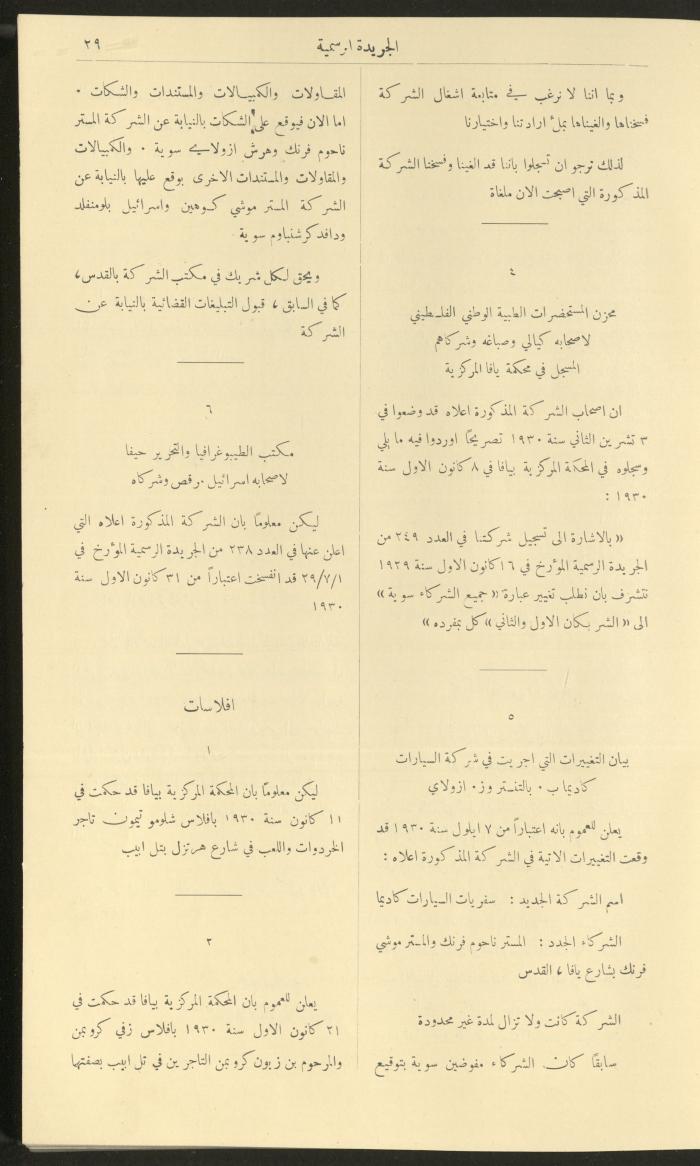 الجريدة الرسمية
٢٩
وبما اننا لا نرغب في متابعة اشغال الشركة
فسخناها والغيناها بملء ارادتنا واختيارنا
لذلك نرجو ان تسجلوا باننا قد الغينا وفسخنا الشركة
المذكورة التي اصبحت الان ملغاة
٤
مخزن المستحضرات الطبية الوطني الفلسطيني
لاصحابه كيالي وصباغه وشركاهم
المسجل في محكمة يافا المركزية
ان اصحاب الشركة المذكورة اعلاه قد وضعوا في
٣ تشرين الثاني سنة ١٩٣٠ تصريحًا اوردوا فيه ما يلي
وسجلوه في المحكمة المركزية بيافا في ٨ كانون الاول سنة
١٩٣٠ :
« بالاشارة الى تسجيل شركتنا في العدد ٢٤٩ من
الجريدة الرسمية المؤرخ في ١٦ كانون الاول سنة ١٩٢٩
نتشرف بان نطلب تغيير عبارة « جميع الشركاء سوية »
الى « الشريكان الاول والثاني » كل بمفرده »
٥
بيان التغييرات التي اجريت في شركة السيارات
كاديما ب٠ بالتنستر وز٠ ازولاي
يعلن للعموم بانه اعتباراً من ٧ ايلول سنة ١٩٣٠ قد
وقعت التغييرات الاتية في الشركة المذكورة اعلاه :
اسم الشركة الجديد : سفريات السيارات كاديما
الشركاء الجدد : المستر ناحوم فرنك والمستر موشي
فرنك بشارع يافا ، القدس
الشركة كانت ولا تزال لمدة غير محدودة
سابقًا كان الشركاء مفوضين سوية بتوقيع
المقاولات والكمبيالات والمستندات والشكات ٠
اما الان فيوقع على الشكات بالنيابة عن الشركة المستر
ناحوم فرنك وهرش ازولاي سوية ٠ والكمبيالات
والمقاولات والمستندات الاخرى يوقع عليها بالنيابة عن
الشركة المستر موشي كوهين واسرائيل بلومنفلد
ودافد كرشنباوم سوية
ويحق لكل شريك في مكتب الشركة بالقدس ،
كما في السابق ، قبول التبليغات القضائية بالنيابة عن
الشركة
٦
مكتب الطيبوغرافيا والتحرير حيفا
لاصحابه اسرائيل مرقص وشركاه
ليكن معلومًا بان الشركة المذكورة اعلاه التي
اعلن عنها في العدد ٢٣٨ من الجريدة الرسمية المؤرخ في
٢٩/٧/١ قد انفسخت اعتباراً من ٣١ كانون الاول سنة
١٩٣٠
افلاسات
١
ليكن معلومًا بان المحكمة المركزية بيافا قد حكمت في
١١ كانون سنة ١٩٣٠ بافلاس شلومو تيمون تاجر
الخردوات واللعب في شارع هرتزل بتل ابيب
٢
يعلن للعموم بان المحكمة المركزية بيافا قد حكمت في
٢١ كانون الاول سنة ١٩٣٠ بافلاس زفي كروبمن
والمرحوم بن زيون كروبمن التاجرين في تل ابيب بصفتها